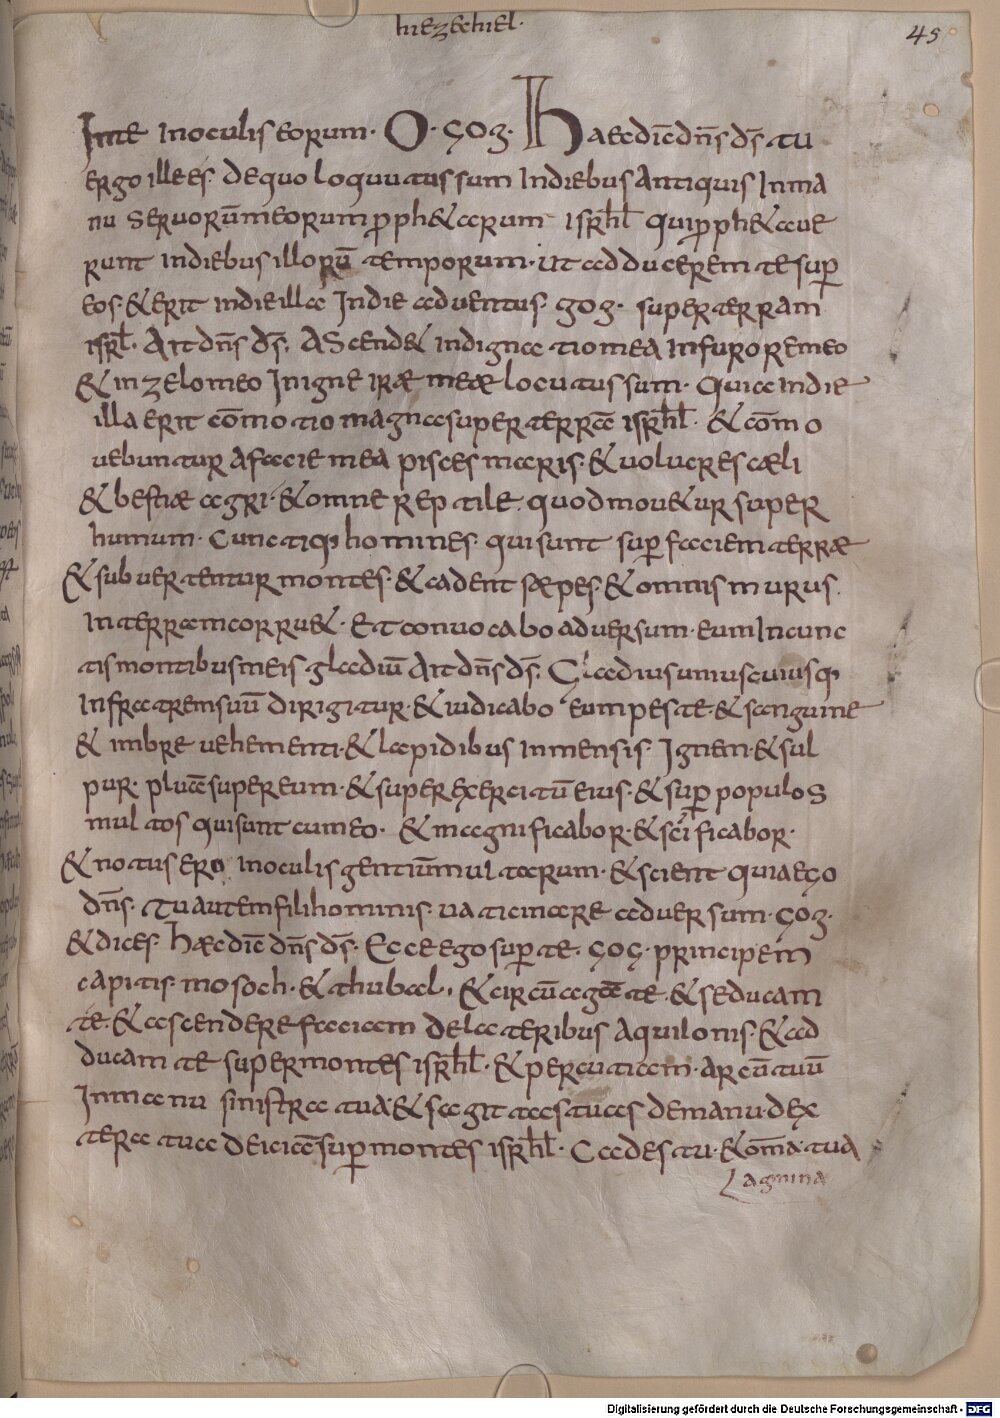 hiezechiel·
45
In te inoculis eorum· O· gog· Haecdicē dn̄s ds̄· tu
ergo ille es· de quo loquutus sum Indiebus antiquis Inma
nu seruorūmeorum p̄ph&arum isrl̄ qui p̄ph&aue
runt Indiebus illorū temporum· ut adducerem te sup̄
eos· & erit indie illa Indie aduentus· gog· super terram
isrl̄· Ait dn̄s ds̄· Ascend& indigna tio mea Infurore meo
& in zelo meo In igne irae meae locutus sum· Quia indie
illa erit cōmotio magna super terrā isrl̄· & cōmo
uebuntur a facie mea pisces maris· & uolucres caeli
& bestiae agri· & omne reptile quod mou&ur super
humum· Cunctiq; homines qui sunt sup̄ faciem terrae
& subuertentur montes· & cadent saepes· & omnis murus
In terram corru&· Et conuocabo aduersum· eum In cunc
tis montibus meis gladiū Ait dn̄s ds̄· Gladius uniuscuiusq;
In fratrem suū dirigitur· & iudicabo eum peste· & sanguine
& imbre uehementi· & lapidibus inmensis· Ignem· & sul
pur· pluā super eum· & super exercitū eius· & sup̄ populos
multos qui sunt cum eo· & magnificabor· & sc̄ificabor·
& notus ero inoculis gentiūmultarum· & scient quia ego
dn̄s· Tu autem fili hominis· uaticinare aduersum· gog·
& dices· Haecdicē dn̄s ds̄· Ecce ego sup̄ te· gog· principem
capitis· mosoch· & thubal· & circūagā te· & seducam
te· & ascendere faciam de lateribus aquilonis· & ad
ducam te super montes isrl̄· & percutiam· arcū tuū
In manu sinistra tua· & sagittas tuas de manu· dex
tera tua deiciā sup̄ montes isrl̄· Cades tu· & om̄a· tua
agmina
Digitalisierung gefördert durch die Deutsche Forschungsgemeinschaft - DFG